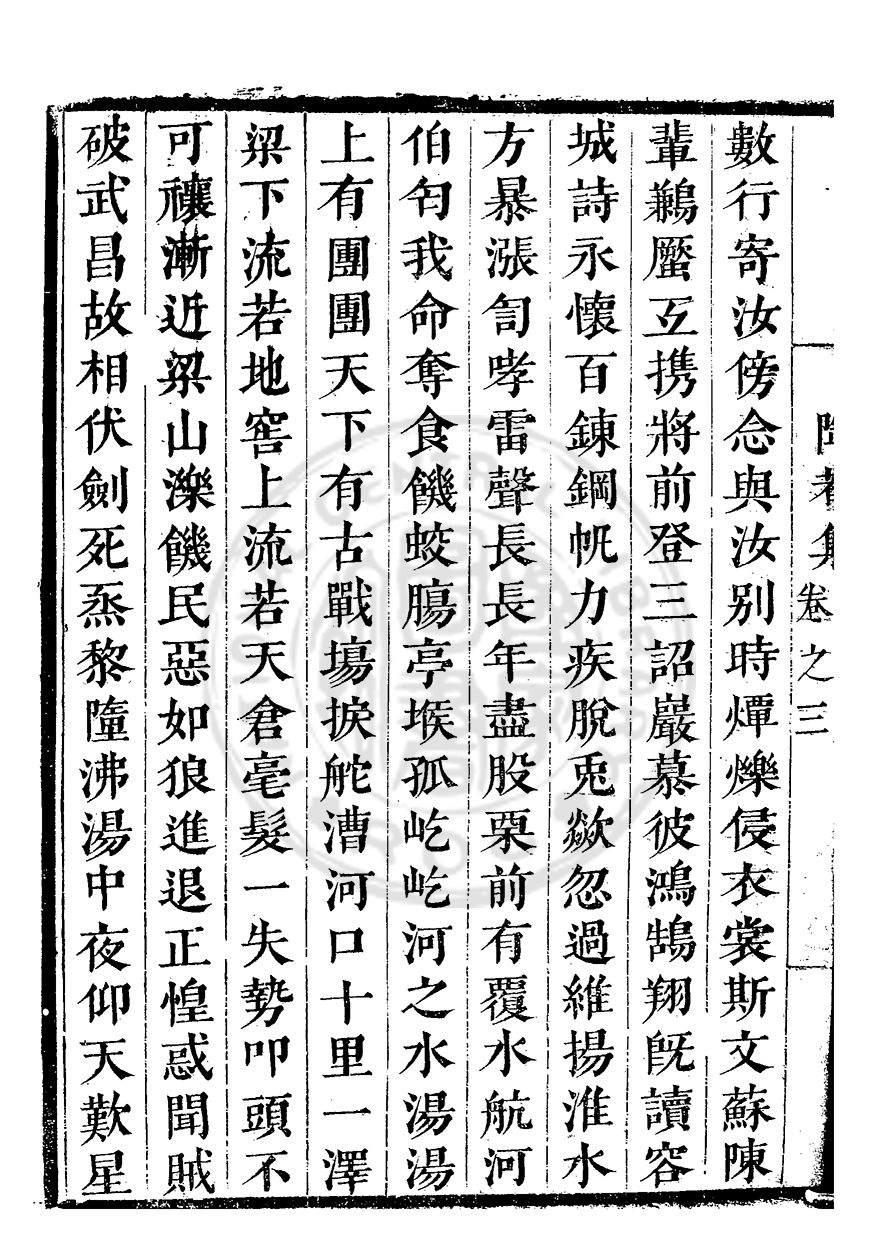 數行寄汝傍念與汝別時燂爍侵衣裳斯文蘇陳
輩鶼蟨互携將前登三詔巖慕彼鴻鵠翔既讀容
城詩永懷百鍊鋼帆力疾脫兎歘忽過維揚淮水
方暴漲訇哮雷聲長長年盡股栗前有覆水航河
伯匄我命奪食饑蛟腸亭堠孤屹屹河之水湯湯
上有團團天下有古戰塲捩舵漕河口十里一澤
梁下流若地窖上流若天倉毫髮一失勢叩頭不
可禳漸近梁山濼饑民惡如狼進退正惶惑聞賊
破武昌故相伏劍死烝黎墮沸湯中夜仰天歎星
集卷之三